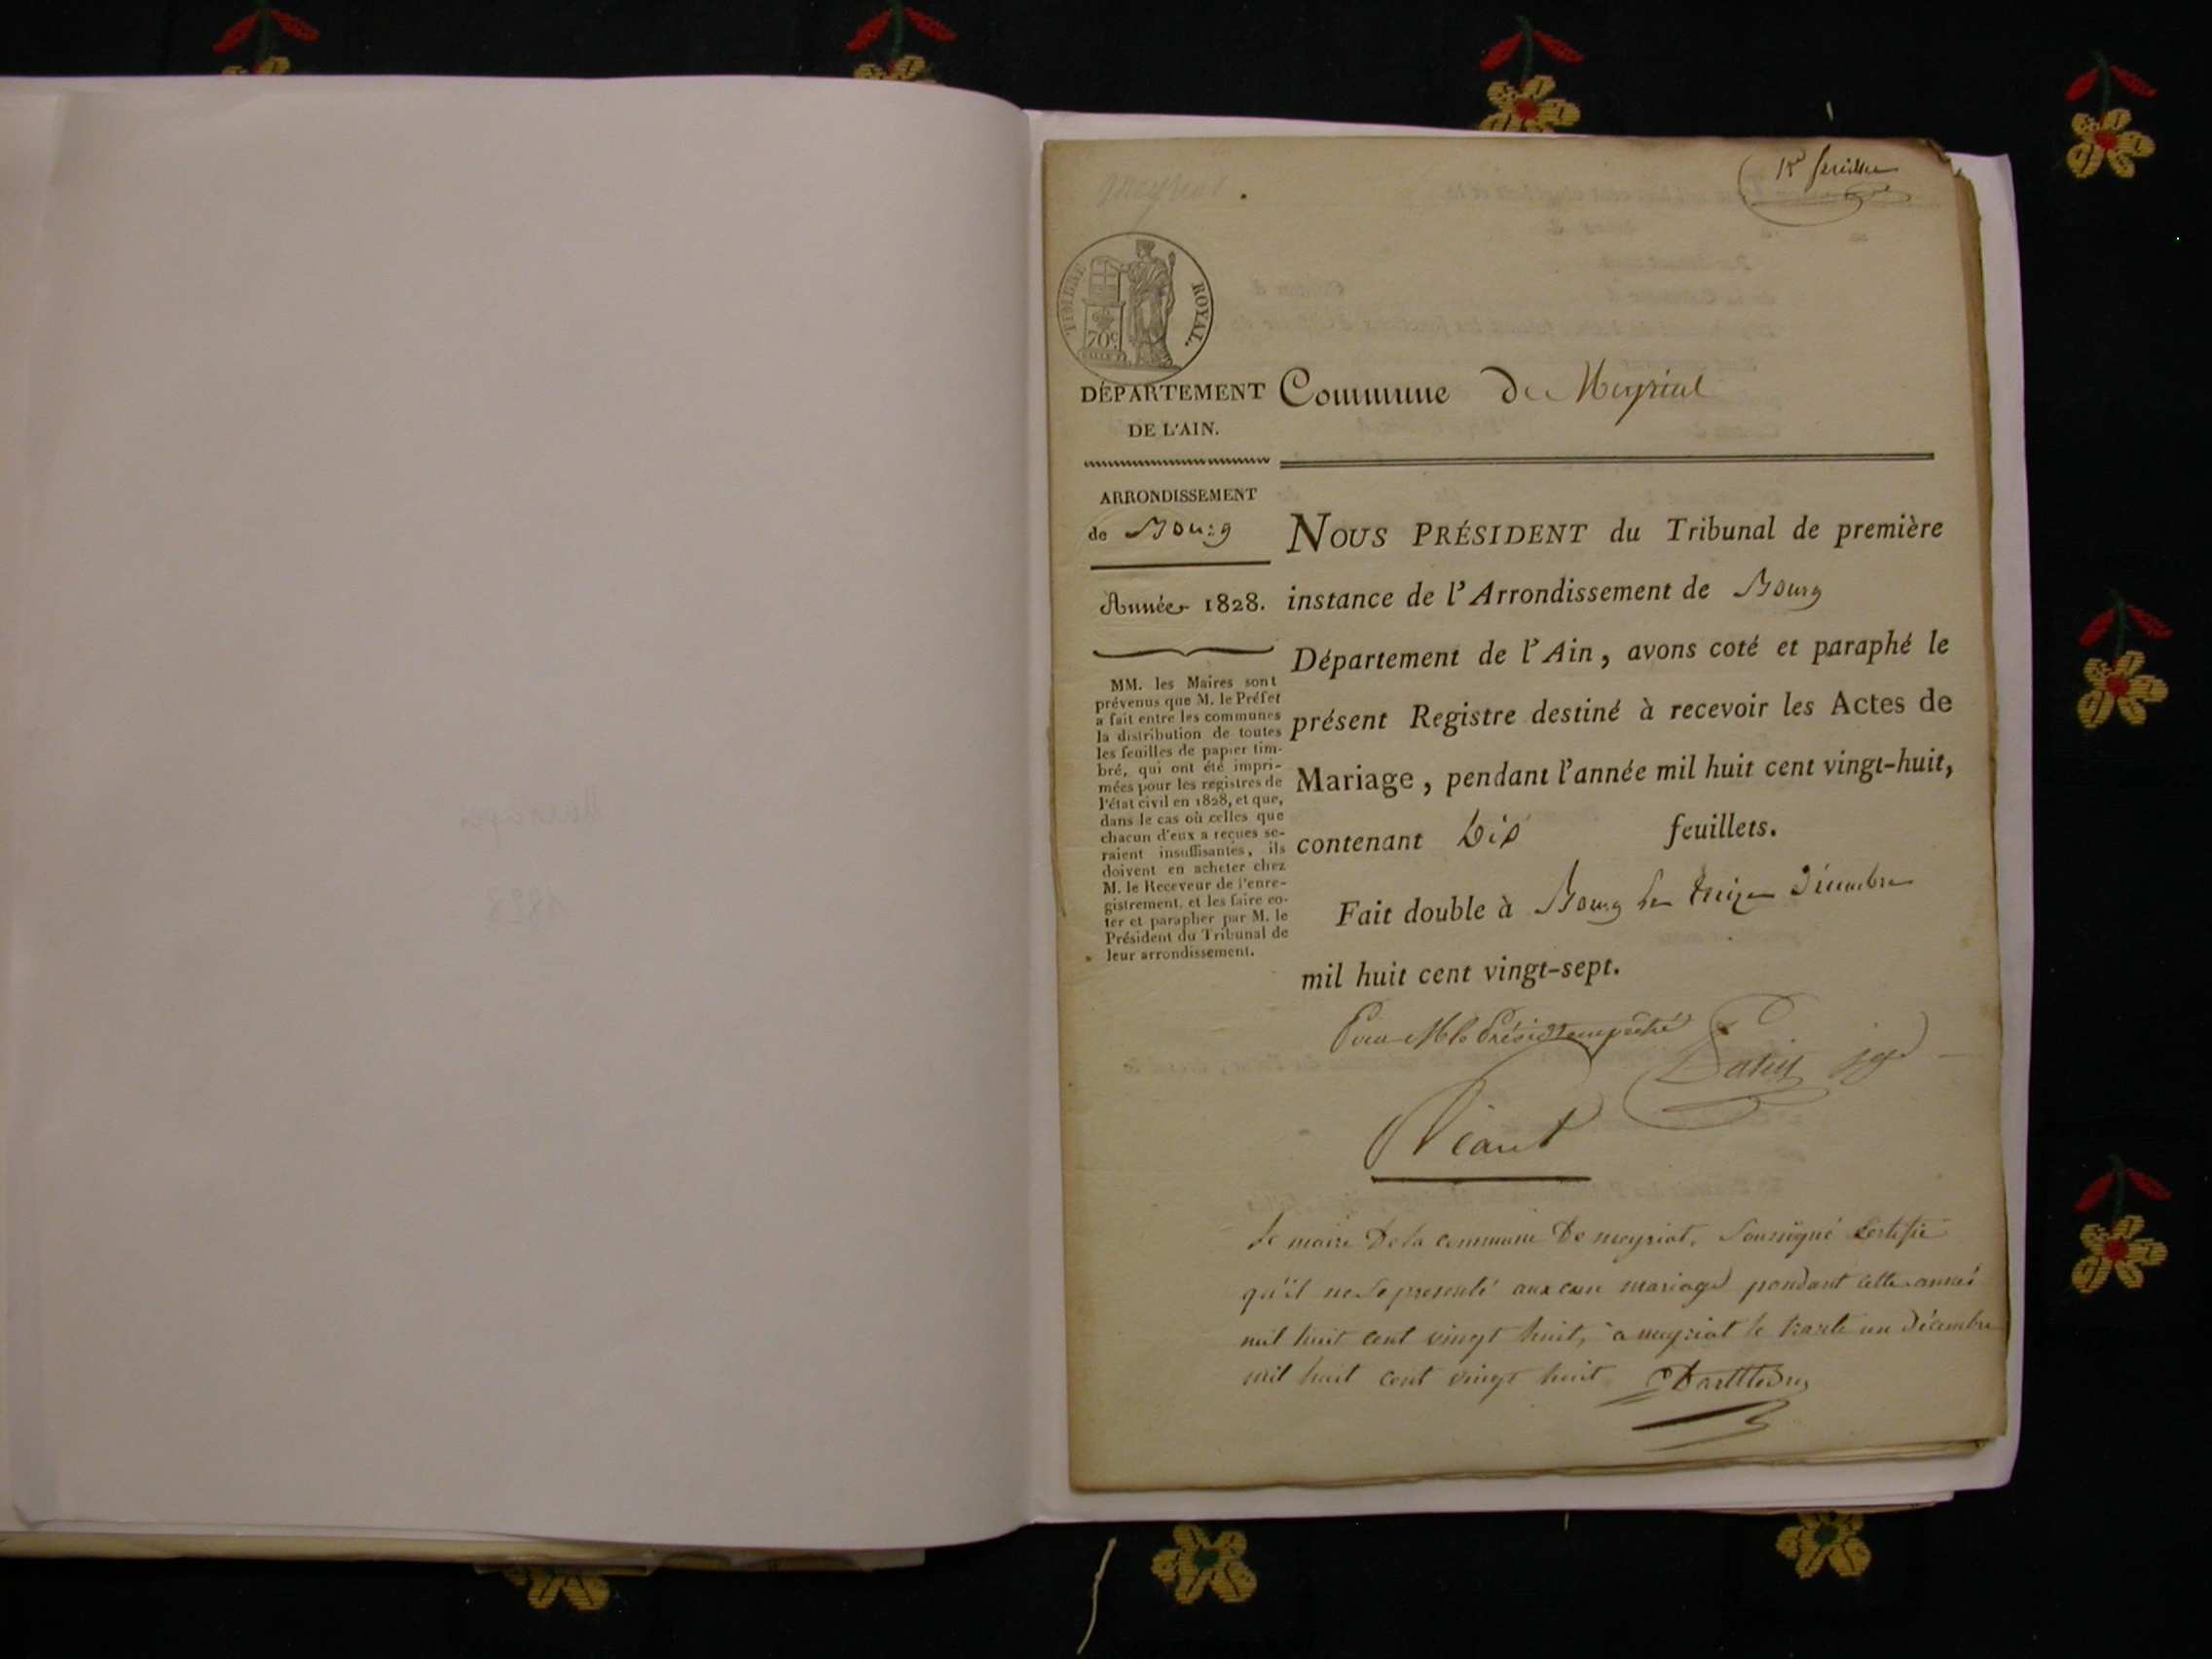 meyriat.
1er feuillet
TIMBRE ROYAL.
70 c.
DÉPARTEMENT
DE L'AIN.
Commune de Meyriat
ARRONDISSEMENT
de Bourg
Année 1828.
MM. les Maires sont
prévenus que M. le Préfet
a fait entre les communes
la distribution de toutes
les feuilles de papier tim-
bré, qui ont été impri-
mées pour les registres de
l'état civil en 1828, et que,
dans le cas où celles que
chacun d'eux a reçues se-
raient insuffisantes, ils
doivent en acheter chez
M. le Receveur de l'enre-
gistrement, et les faire co-
ter et parapher par M. le
Président du Tribunal de
leur arrondissement.
NOUS PRÉSIDENT du Tribunal de première
instance de l'Arrondissement de Bourg
Département de l'Ain, avons coté et paraphé le
présent Registre destiné à recevoir les Actes de
Mariage, pendant l'année mil huit cent vingt-huit,
contenant dix feuillets.
Fait double à Bourg le treize Décembre
mil huit cent vingt-sept.
Pour M. le Président empêché
le maire De la commune De meyriat, Soussigné Certifie
qu'il ne Se presenté auxcun mariage pendant cette année
mil huit cent vingt huit, a meyriat le trante un Décembre
mil huit cent vingt huit